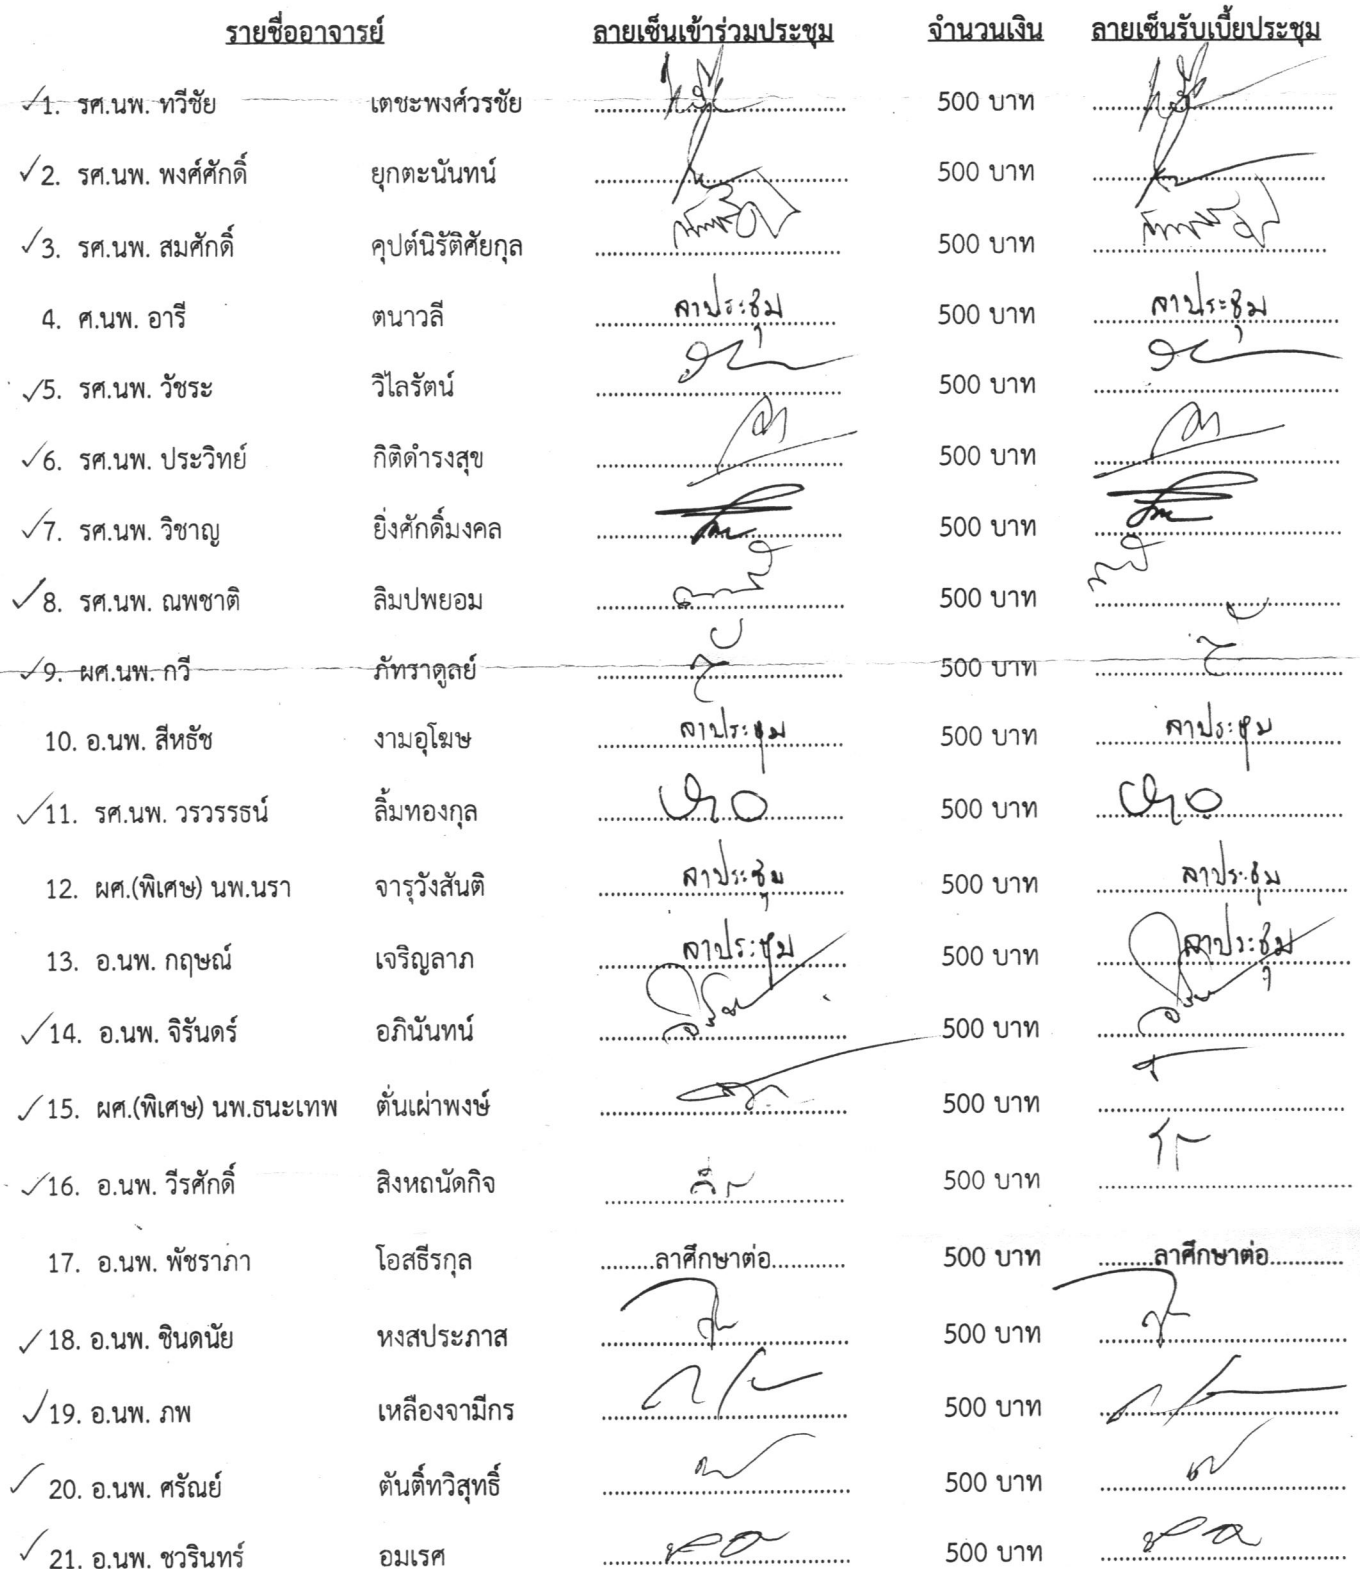 รายชื่ออาจารย์ ลายเซ็นเข้าร่วมประชุม จำนวนเงิน ลายเซ็นรับเบี้ยประชุม
1. รศ.นพ. ทวีชัย เตชะพงศ์วรชัย 500 บาท
2. รศ.นพ. พงศ์ศักดิ์ ยุกตะนันทน์ 500 บาท
3. รศ.นพ. สมศักดิ์ คุปต์นิรัติศัยกุล 500 บาท
4. ศ.นพ. อารี ตนาวลี ลาประชุม 500 บาท ลาประชุม
5. รศ.นพ. วัชระ วิไลรัตน์ 500 บาท
6. รศ.นพ. ประวิทย์ กิติดำรงสุข 500 บาท
7. รศ.นพ. วิชาญ ยิ่งศักดิ์มงคล 500 บาท
8. รศ.นพ. ณพชาติ ลิมปพยอม 500 บาท
9. ผศ.นพ. กวี ภัทราดูลย์ 500 บาท
10. อ.นพ. สีหธัช งามอุโฆษ ลาประชุม 500 บาท ลาประชุม
11. รศ.นพ. วรวรรธน์ ลิ้มทองกุล 500 บาท
12. ผศ.(พิเศษ) นพ.นรา จารุวังสันติ ลาประชุม 500 บาท ลาประชุม
13. อ.นพ. กฤษณ์ เจริญลาภ ลาประชุม 500 บาท ลาประชุม
14. อ.นพ. จิรันดร์ อภินันทน์ 500 บาท
15. ผศ.(พิเศษ) นพ.ธนะเทพ ตั่นเผ่าพงษ์ 500 บาท
16. อ.นพ. วีรศักดิ์ สิงหถนัดกิจ 500 บาท
17. อ.นพ. พัชราภา โอสธีรกุล ลาศึกษาต่อ 500 บาท ลาศึกษาต่อ
18. อ.นพ. ชินดนัย หงสประภาส 500 บาท
19. อ.นพ. ภพ เหลืองจามีกร 500 บาท
20. อ.นพ. ศรัณย์ ตันติ์ทวิสุทธิ์ 500 บาท
21. อ.นพ. ชวรินทร์ อมเรศ 500 บาท